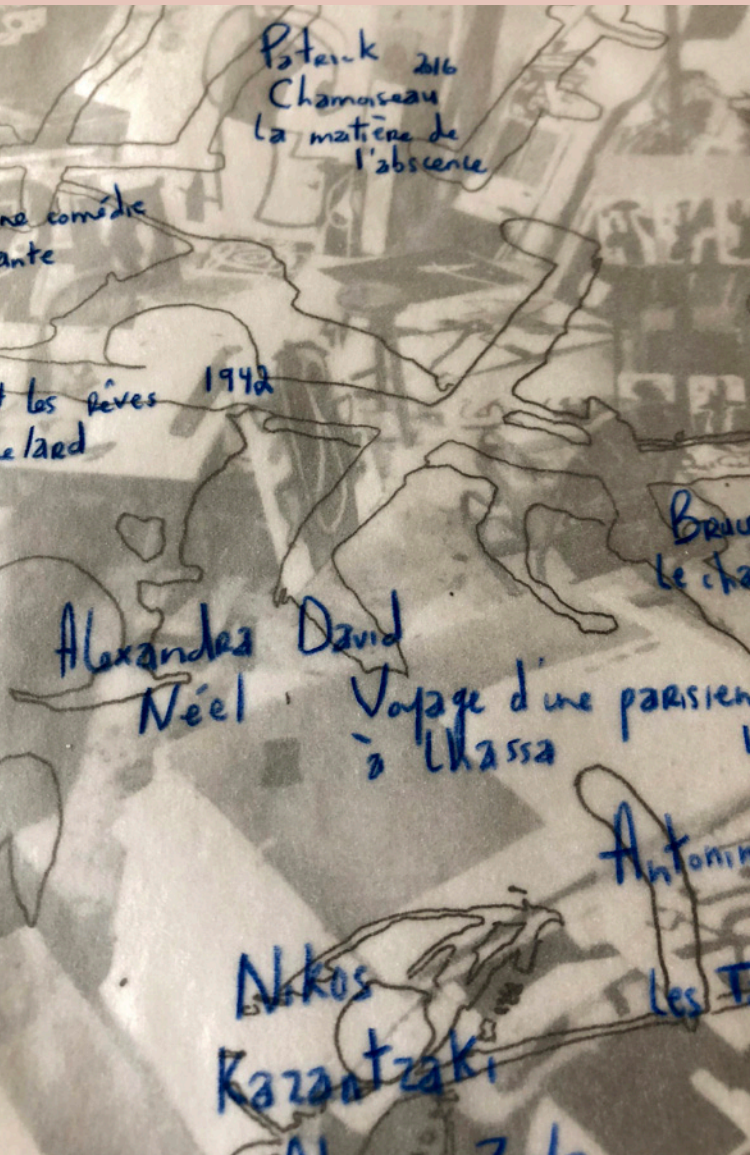 Patrick 2016
Chamoiseau
La matière de
l'abscence
ne comédie
ante
les Rêves 1942
elard
Bruc
Le cha
Alexandra David
Néel
Voyage d'une parisien
à Lhassa
Antonin
Les T
Nikos
Kazantzaki